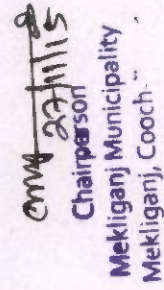 27/11/15
Chairperson
Mekliganj Municipality
Mekliganj, Cooch-